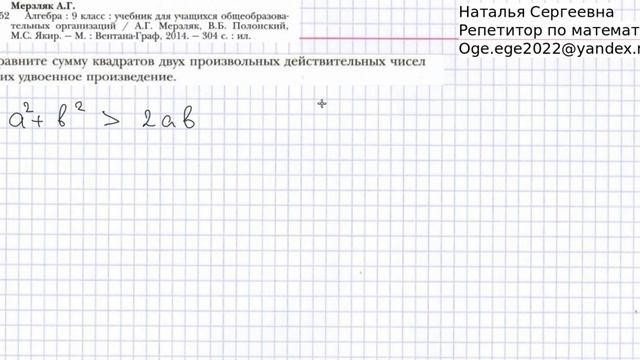 Мерзляк А.Г.
52 Алгебра : 9 класс : учебник для учащихся общеобразова-
тельных организаций / А.Г. Мерзляк, В.Б. Полонский,
М.С. Якир. — М. : Вентана-Граф, 2014. — 304 с. : ил.
Наталья Сергеевна
Репетитор по математ
Oge.ege2022@yandex.r
равните сумму квадратов двух произвольных действительных чисел
их удвоенное произведение.
a² + b² > 2ab